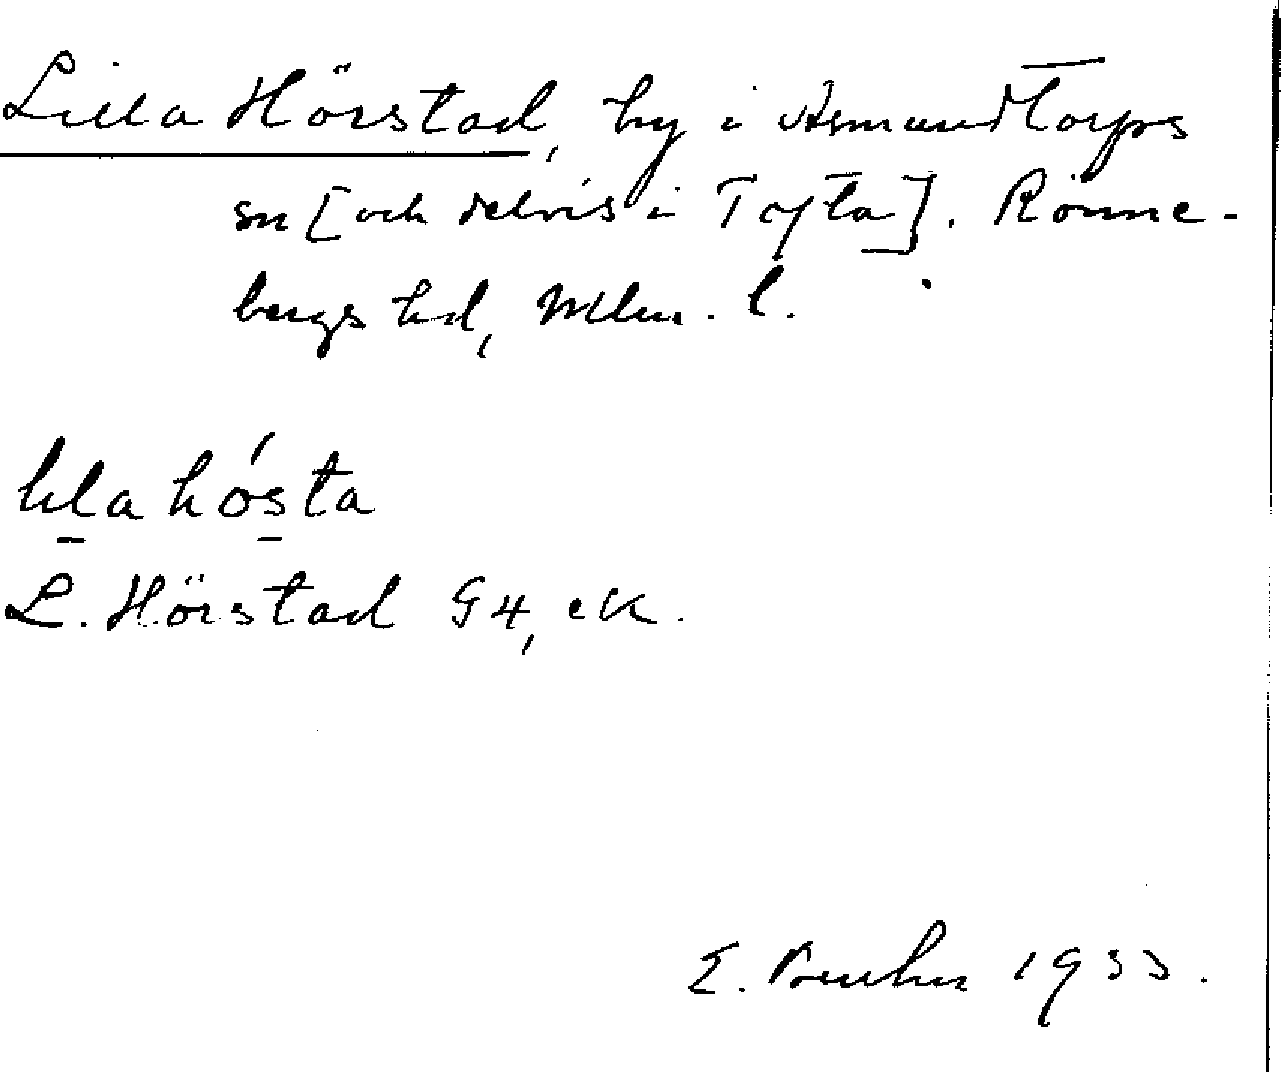 Lilla Hörstad, by i Asmundtorps
sn [och delvis i Tofta]. Rönne-
bergs hd, Mlm. l.
hösta
L. Hörstad G4, ek.
E. 1933.